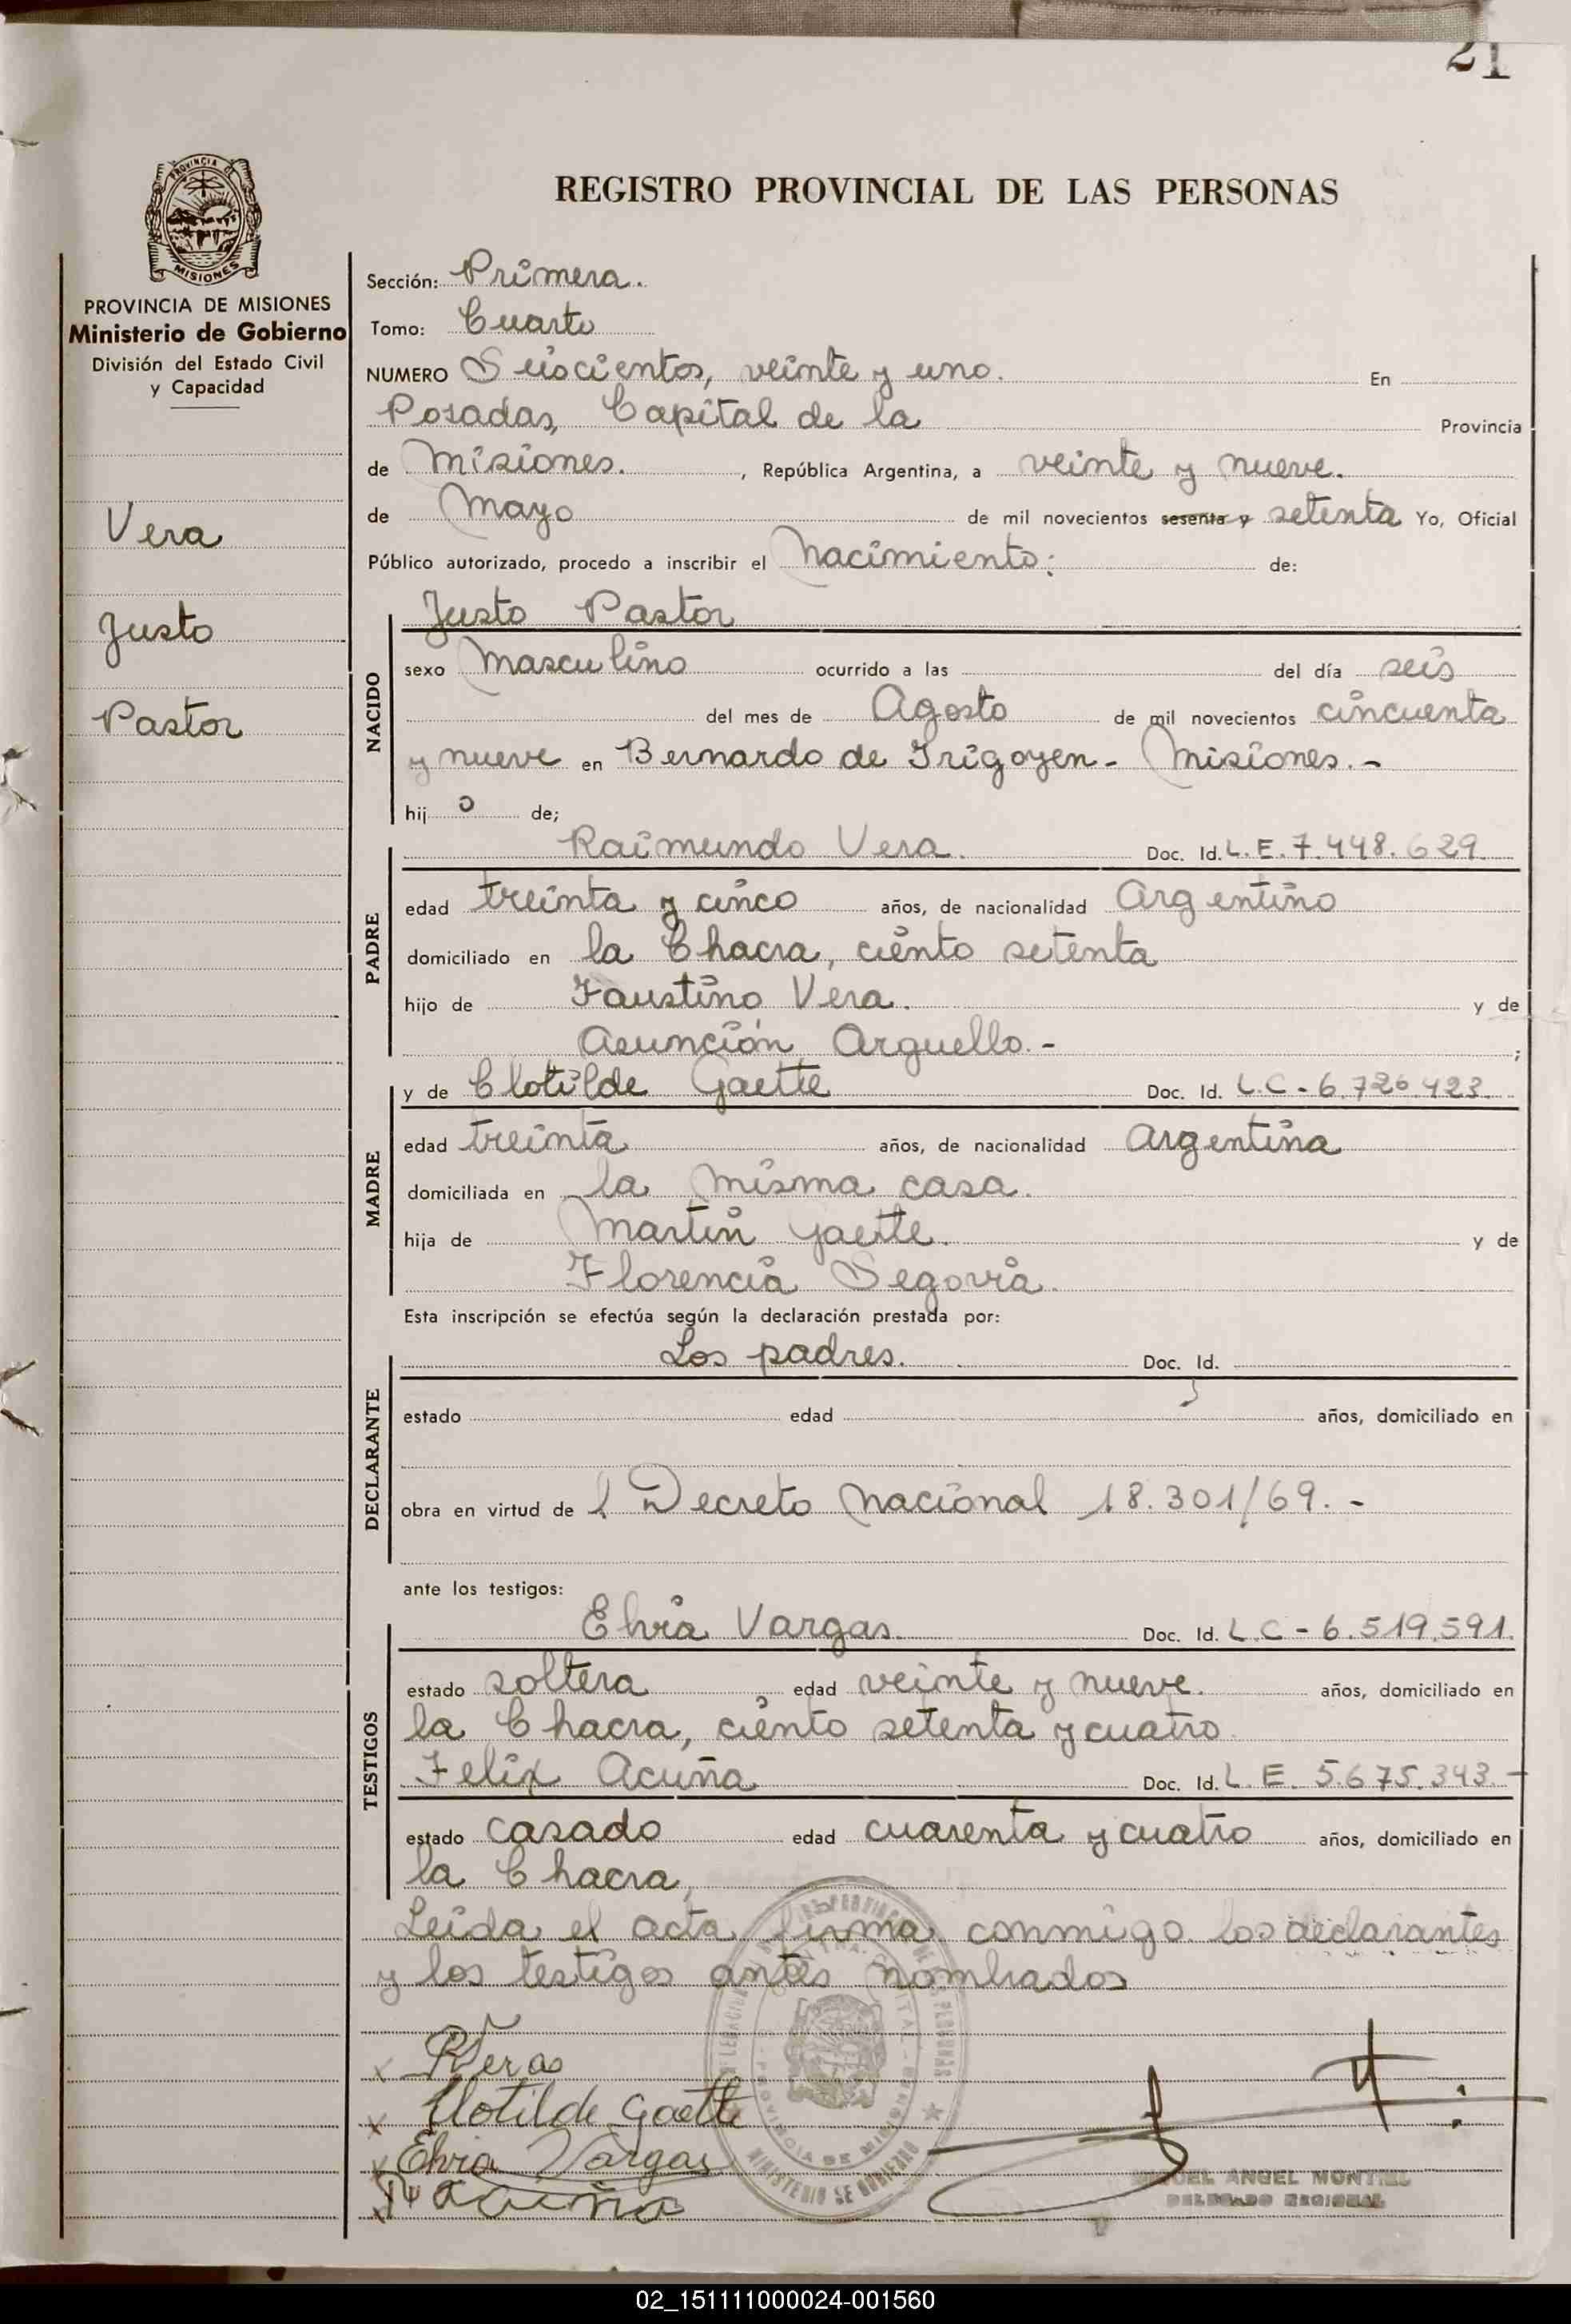 21
PROVINCIA DE
MISIONES
REGISTRO PROVINCIAL DE LAS PERSONAS
PROVINCIA DE MISIONES
Ministerio de Gobierno
División del Estado Civil
y Capacidad
Vera
Justo
Pastor
Sección: Primera.
Tomo: Cuarto
NUMERO Seiscientos, veinte y uno. En
Posadas, Capital de la Provincia
de Misiones. , República Argentina, a veinte y nueve.
de Mayo de mil novecientos sesenta y setenta Yo, Oficial
Público autorizado, procedo a inscribir el Nacimiento: de:
NACIDO
Justo Pastor
sexo Masculino ocurrido a las del día seis
del mes de Agosto de mil novecientos cincuenta
y nueve en Bernardo de Irigoyen - Misiones. -
hijo de;
PADRE
Raimundo Vera. Doc. Id. L. E. 7.448.629
edad treinta y cinco años, de nacionalidad Argentino
domiciliado en la Chacra, ciento setenta
hijo de Faustino Vera. y de
Asunción Arguello. - ;
y de Clotilde Gaette Doc. Id. L.C - 6.726.423.
MADRE
edad treinta años, de nacionalidad Argentina
domiciliada en la misma casa.
hija de Martin Gaette. y de
Florencia Segovia.
Esta inscripción se efectúa según la declaración prestada por:
DECLARANTE
Los padres. Doc. Id.
estado edad años, domiciliado en
obra en virtud de l Decreto Nacional 18.301/69. -
ante los testigos:
TESTIGOS
Elvia Vargas. Doc. Id. L.C - 6.519.591.
estado soltera edad veinte y nueve. años, domiciliado en
la Chacra, ciento setenta y cuatro.
Felix Acuña Doc. Id. L. E. 5.675.343. -
estado casado edad cuarenta y cuatro años, domiciliado en
la Chacra,
Leida el acta, firma conmigo los declarantes
y los testigos antes nombrados
x RVera
x Clotilde Gaette
x Elvia Vargas
x Acuña
MINISTERIO DE GOBIERNO
PROVINCIA DE MISIONES
MIGUEL ANGEL MONTIEL
DELEGADO REGIONAL
02_151111000024-001560